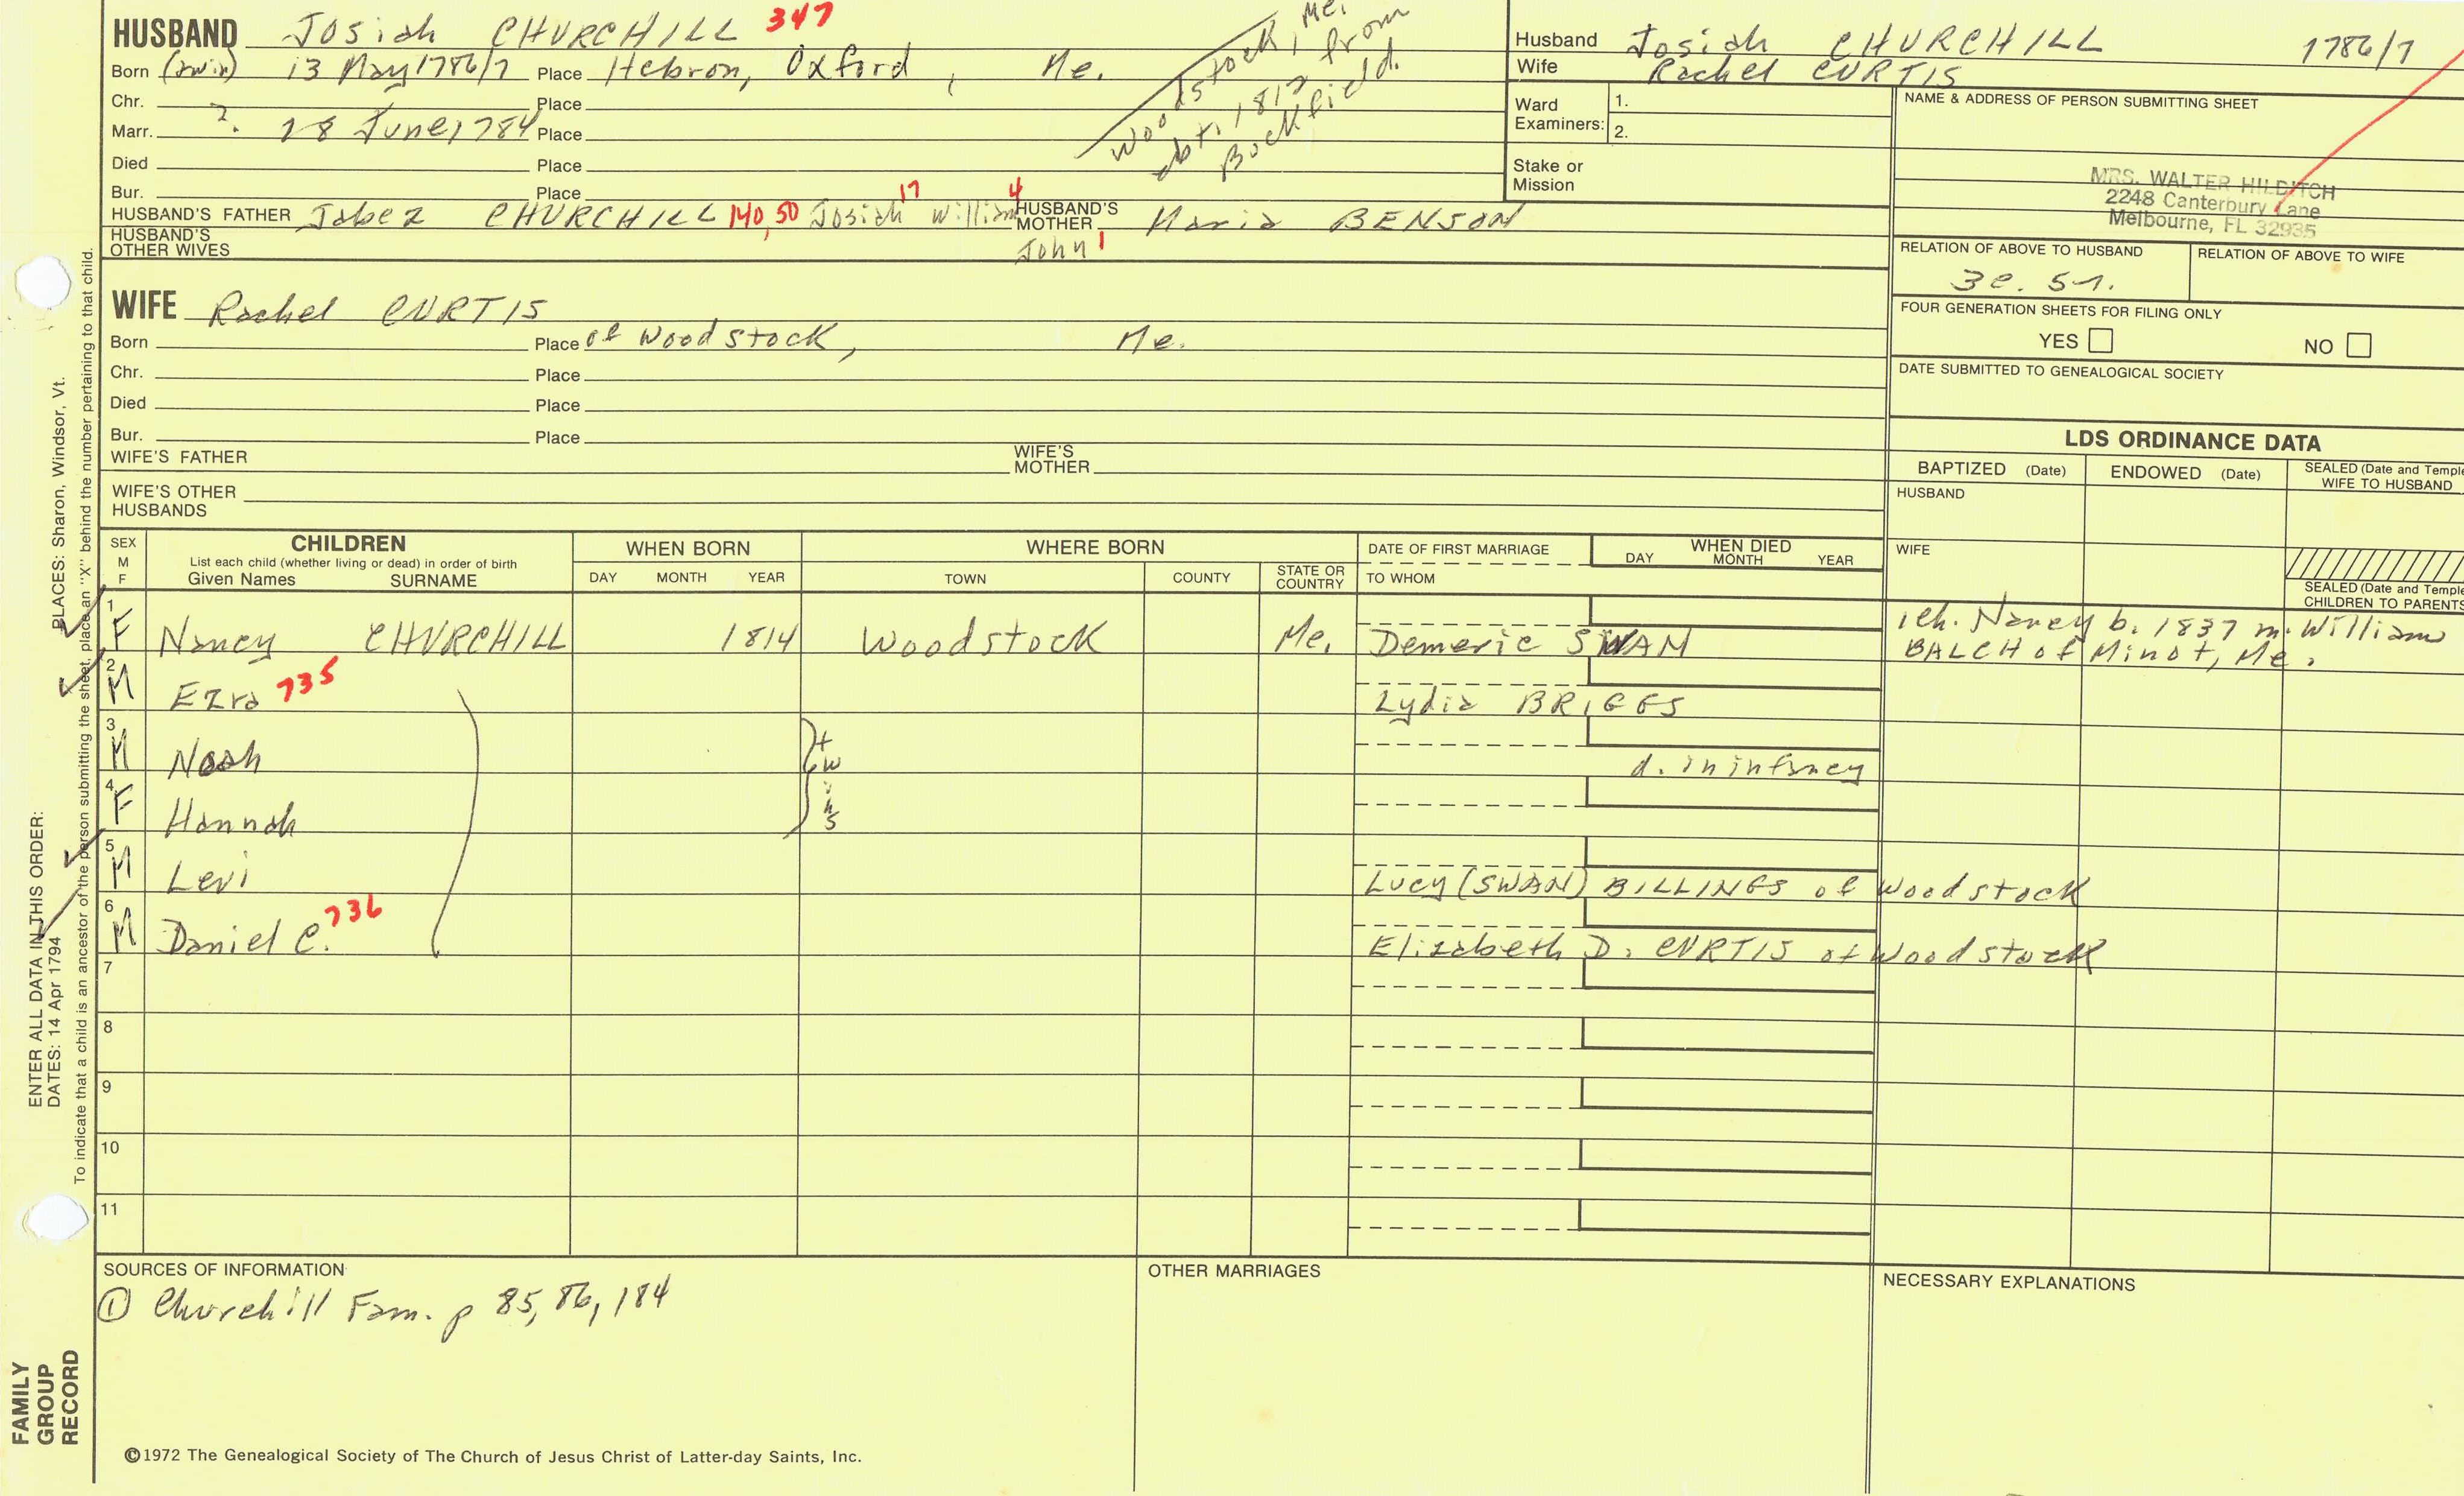 HUSBAND Josiah CHURCHILL 347
Born (twin) 13 May 1786/7 Place Hebron, Oxford, Me.
Chr. Place
Marr. ? 28 June, 1784 Place
Died Place
Bur. Place
Woodstock, Me.
abt. 1812 from
Buckfield.
HUSBAND'S FATHER Jabez CHURCHILL 140, 50 Josiah 17 William 4 HUSBAND'S MOTHER Maria BENSON
John 1
HUSBAND'S OTHER WIVES
WIFE Rachel CURTIS
Born Place of Woodstock, Me.
Chr. Place
Died Place
Bur. Place
WIFE'S FATHER WIFE'S MOTHER
WIFE'S OTHER HUSBANDS
Husband Josiah CHURCHILL 1786/7
Wife Rachel CURTIS
Ward Examiners: 1.
2.
Stake or Mission
NAME & ADDRESS OF PERSON SUBMITTING SHEET
MRS. WALTER HILDITCH
2248 Canterbury Lane
Melbourne, FL 32935
RELATION OF ABOVE TO HUSBAND RELATION OF ABOVE TO WIFE
3c. 5r.
FOUR GENERATION SHEETS FOR FILING ONLY
YES NO
DATE SUBMITTED TO GENEALOGICAL SOCIETY
LDS ORDINANCE DATA
BAPTIZED (Date) ENDOWED (Date) SEALED (Date and Temple
WIFE TO HUSBAND
HUSBAND
WIFE
SEALED (Date and Temple
CHILDREN TO PARENTS
SEX M F CHILDREN WHEN BORN WHERE BORN DATE OF FIRST MARRIAGE WHEN DIED
List each child (whether living or dead) in order of birth
Given Names SURNAME DAY MONTH YEAR TOWN COUNTY STATE OR COUNTRY TO WHOM DAY MONTH YEAR
1 F Nancy CHURCHILL 1814 Woodstock Me. Demeric SWAN
1 ch. Nancy b. 1837 m. William
BALCH of Minot, Me.
2 M Ezra 735 Lydia BRIGGS
3 M Noah d. in infancy
4 F Hannah
twins
5 M Levi Lucy (SWAN) BILLINGS of Woodstock
6 M Daniel C. 736 Elizabeth D. CURTIS of Woodstock
7
8
9
10
11
SOURCES OF INFORMATION OTHER MARRIAGES NECESSARY EXPLANATIONS
① Churchill Fam. p 85, 86, 184
©1972 The Genealogical Society of The Church of Jesus Christ of Latter-day Saints, Inc.
FAMILY
GROUP
RECORD
ENTER ALL DATA IN THIS ORDER:
DATES: 14 Apr 1794 PLACES: Sharon, Windsor, Vt.
To indicate that a child is an ancestor of the person submitting the sheet, place an "X" behind the number pertaining to that child.